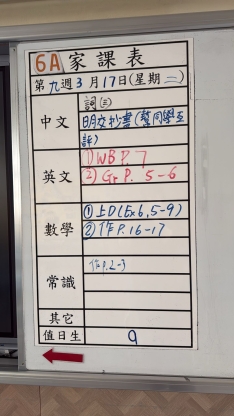 6A 家課表
第九週3月17日(星期二)
中文
詞(三)
明交抄書(幫同學互
評)
英文
①WB P. 7
② Gr P. 5-6
數學
①上D(Ex6,5-9)
②作P.16-17
常識
作P.2-3
其它
值日生
9